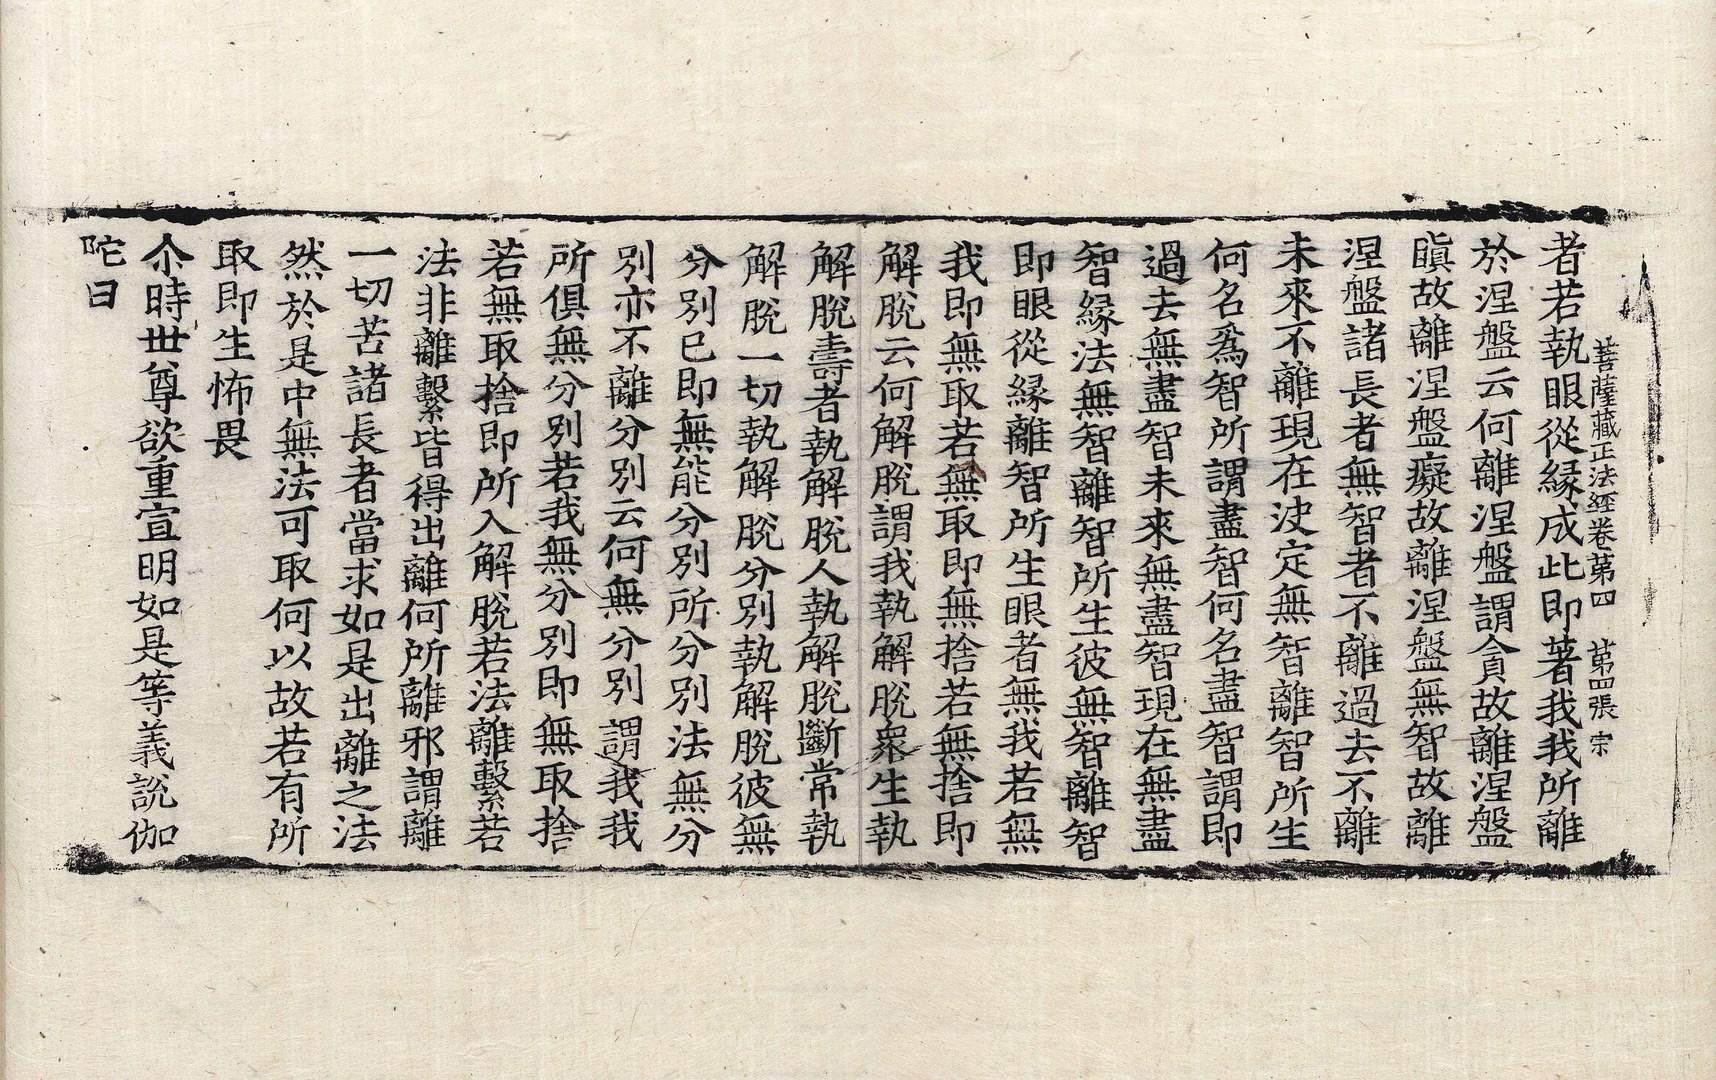 菩薩藏正法經卷第四 第四張 宗
者若執眼從縁成此即著我我所離
於涅盤云何離涅盤謂貪故離涅盤
瞋故離涅盤癡故離涅盤無智故離
涅盤諸長者無智者不離過去不離
未來不離現在決定無智離智所生
何名爲智所謂盡智何名盡智謂即
過去無盡智未來無盡智現在無盡
智縁法無智離智所生彼無智離智
即眼從縁離智所生眼者無我若無
我即無取若無取即無捨若無捨即
解脫云何解脫謂我執解脫衆生執
解脫壽者執解脫人執解脫斷常執
解脫一切執解脫分別執解脫彼無
分別已即無能分別所分別法無分
別亦不離分別云何無分別謂我我
所俱無分別若我無分別即無取捨
若無取捨即所入解脫若法離繫若
法非離繫皆得出離何所離邪謂離
一切苦諸長者當求如是出離之法
然於是中無法可取何以故若有所
取即生怖畏
尒時世尊欲重宣明如是等義說伽
陀曰